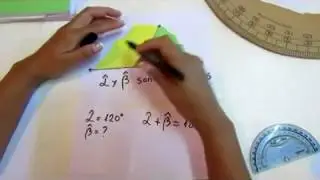 α̂ y β̂ son
α̂ = 120°
β̂ = ?
α̂ + β̂ =